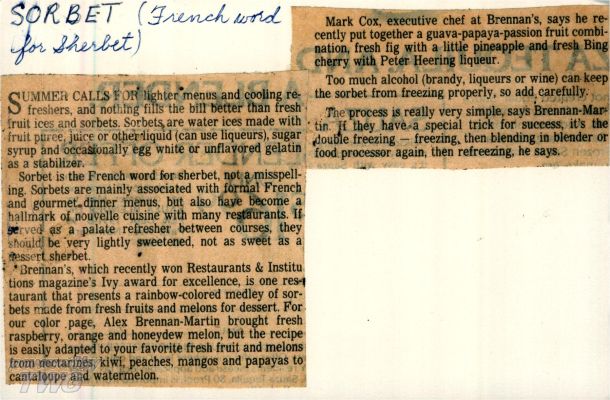 SORBET (French word
for Sherbet)
SUMMER CALLS FOR lighter menus and cooling re-
freshers, and nothing fills the bill better than fresh
fruit ices and sorbets. Sorbets are water ices made with
fruit puree, juice or other liquid (can use liqueurs), sugar
syrup and occasionally egg white or unflavored gelatin
as a stabilizer.
Sorbet is the French word for sherbet, not a misspell-
ing. Sorbets are mainly associated with formal French
and gourmet dinner menus, but also have become a
hallmark of nouvelle cuisine with many restaurants. If
served as a palate refresher between courses, they
should be very lightly sweetened, not as sweet as a
dessert sherbet.
Brennan's, which recently won Restaurants & Institu
tions magazine's Ivy award for excellence, is one res-
taurant that presents a rainbow-colored medley of sor-
bets made from fresh fruits and melons for dessert. For
our color page, Alex Brennan-Martin brought fresh
raspberry, orange and honeydew melon, but the recipe
is easily adapted to your favorite fresh fruit and melons
from nectarines, kiwi, peaches, mangos and papayas to
cantaloupe and watermelon.
Mark Cox, executive chef at Brennan's, says he re-
cently put together a guava-papaya-passion fruit combi-
nation, fresh fig with a little pineapple and fresh Bing
cherry with Peter Heering liqueur.
Too much alcohol (brandy, liqueurs or wine) can keep
the sorbet from freezing properly, so add carefully.
The process is really very simple, says Brennan-Mar-
tin. If they have a special trick for success, it's the
double freezing — freezing, then blending in blender or
food processor again, then refreezing, he says.